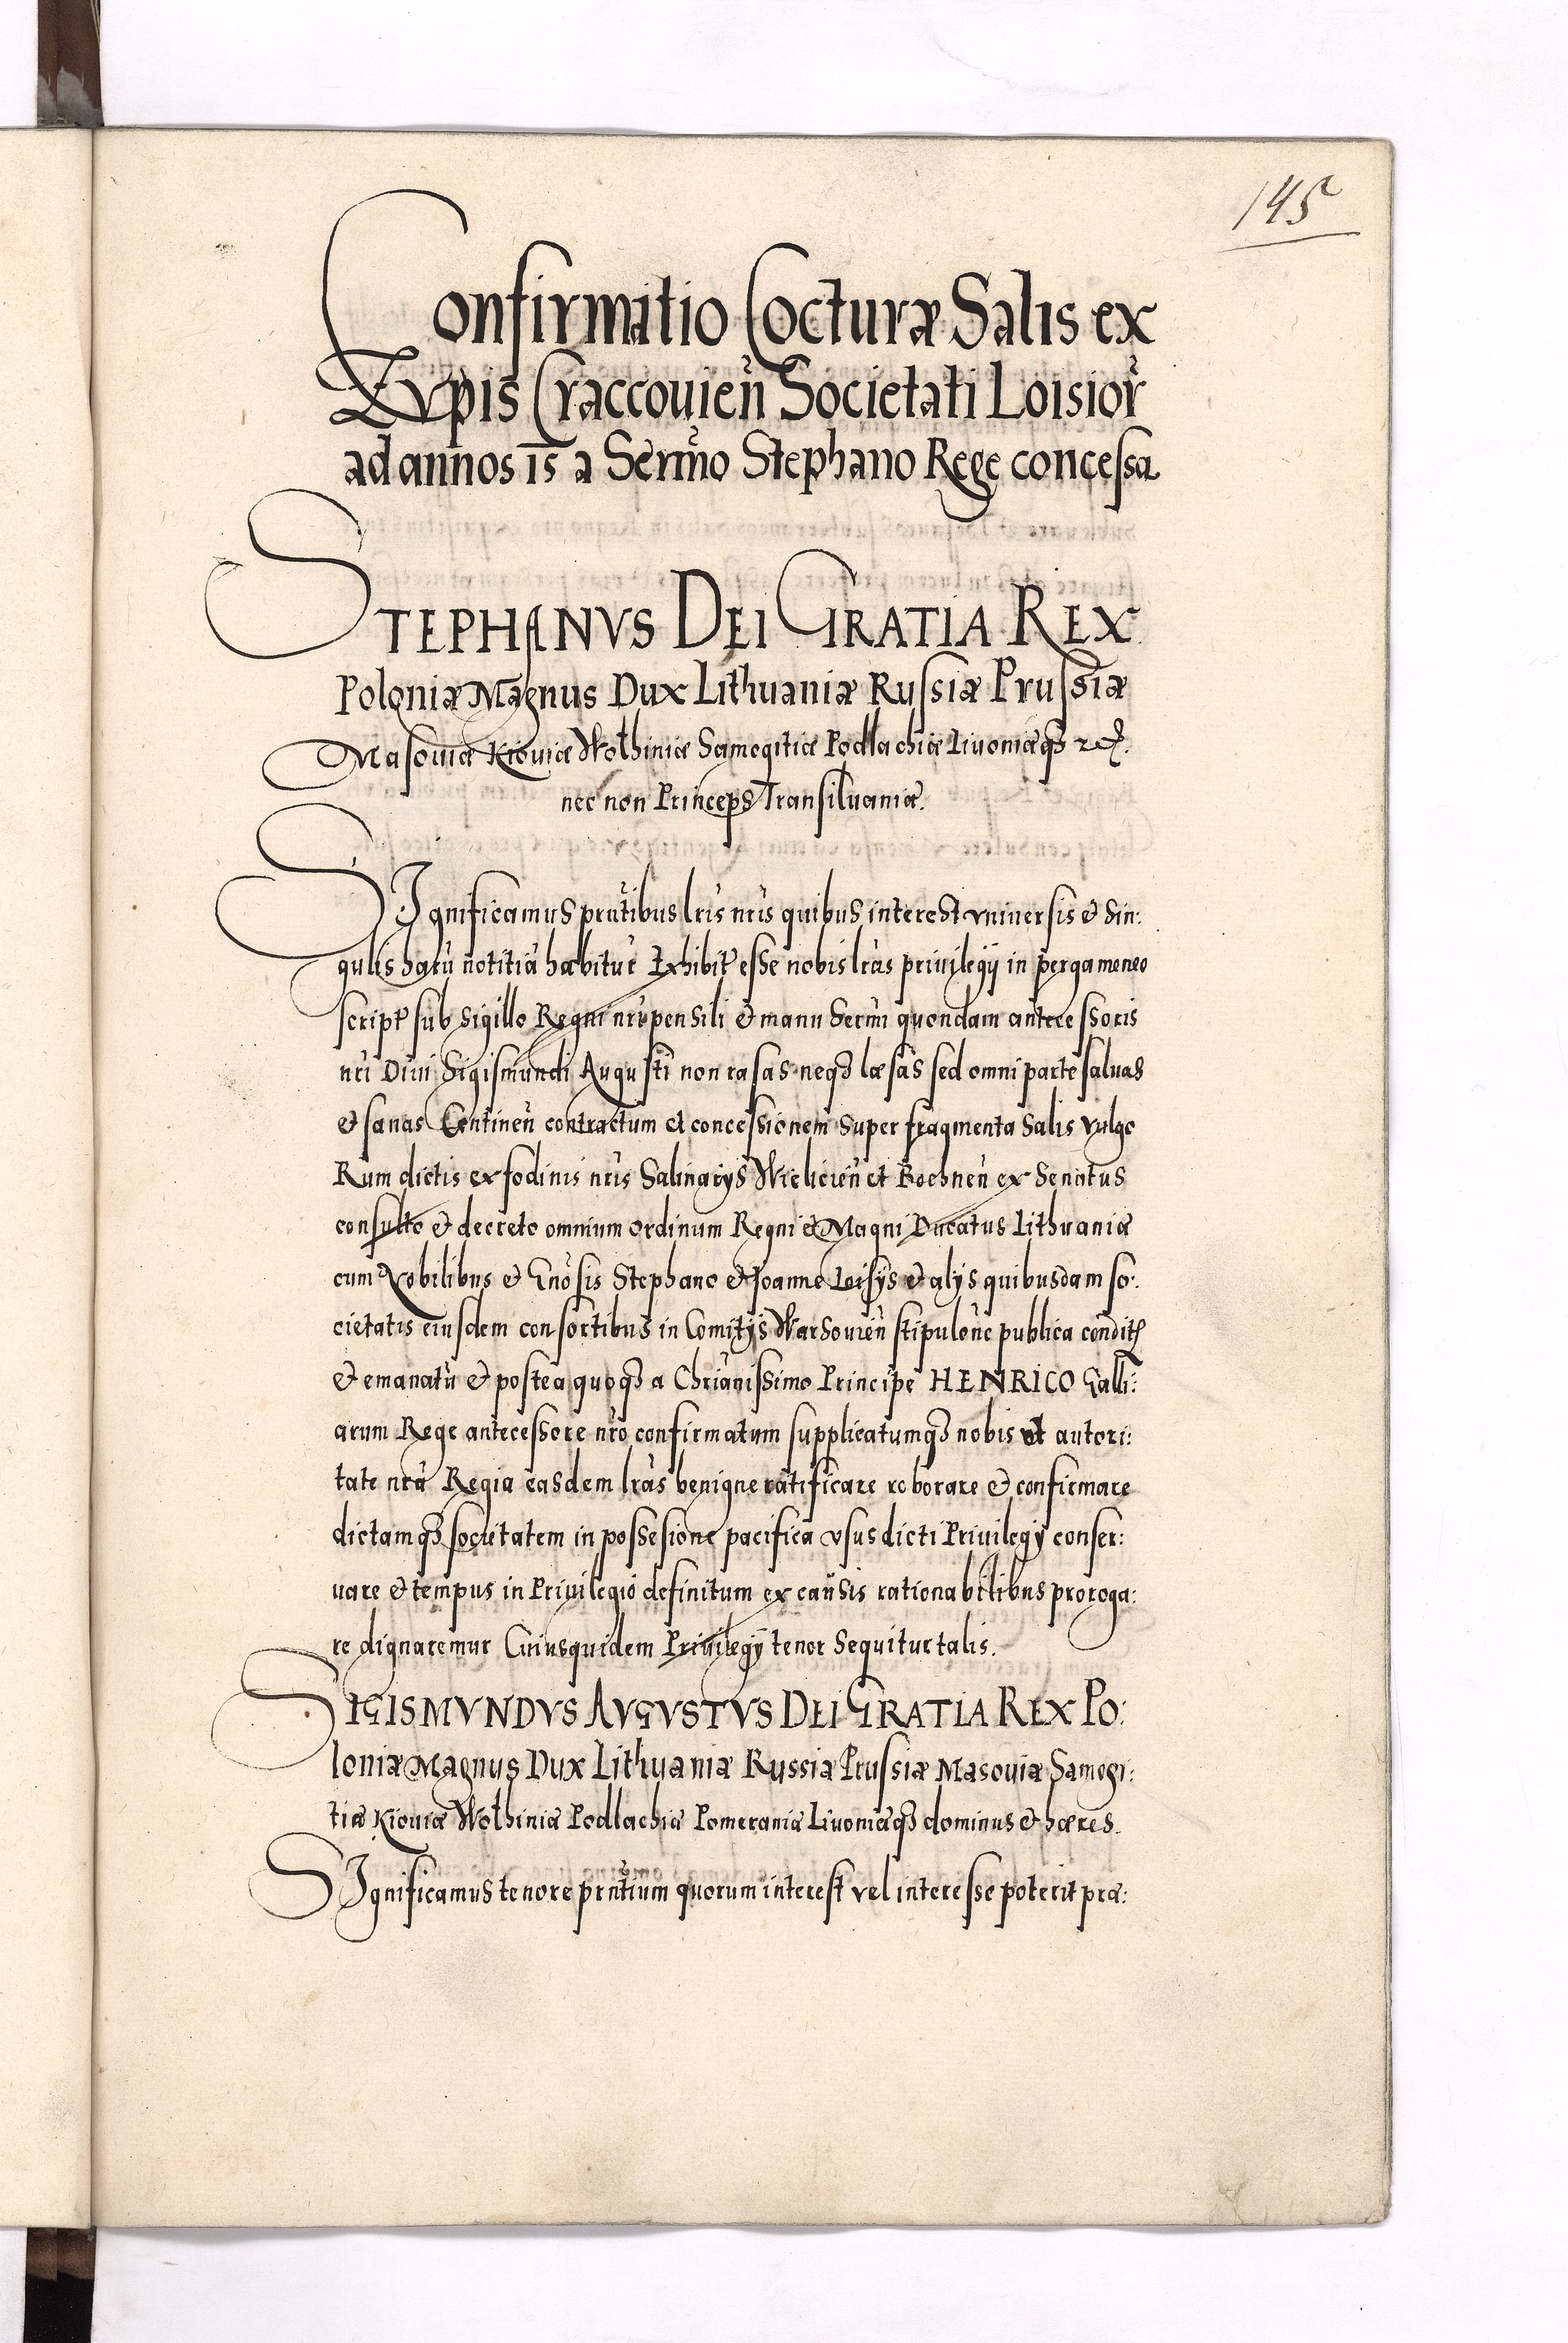 145
Confirmatio Cocturæ Salis ex
Zvpis Craccouien̄ Societati Loisior̄
ad annos 15 a Serm̄o Stephano Rege concessa
STEPHANVS DEI GRATIA REX
Poloniæ Magnus Dux Lithuaniæ Russiæ Prussiæ
Masouiæ Kiouiæ Wolhiniæ Samogitiæ Podlachiæ Liuoniæqꝫ
nec non Princeps Transiluaniæ.
SIgnificamus prn̄tibus lr̄is nr̄is quibus interest vniuersis & sin:
gulis harū notitiā habitur̄ Exhibit̄ esse nobis lr̄as priuilegij in pergameneo
script̄ sub sigillo Regni nr̄i pensili & manu Serm̄i quondam antecessoris
nr̄i Diui Sigismundi Augusti non rasas neqꝫ læsas sed omni parte saluas
& sanas Continen̄ contractum et concessionem super fragmenta Salis vulgo
Rum dictis ex fodinis nr̄is Salinarÿs Wielicien̄ et Bochnen̄ ex Senatus
consulto & decreto omnium ordinum Regni & Magni Ducatus Lithuaniæ
cum Nobilibus & Gn̄osis Stephano & Joanne Loisÿs & alÿs quibusdam so:
cietatis eiusdem consortibus in Comitÿs Warsouien̄ stipulōne publica condit̄
& emanatū & postea quoqꝫ a Chrīanissimo Principe HENRICO Galli:
arum Rege antecessore nr̄o confirmatum supplicatumqꝫ nobis vt autori:
tate nr̄a Regia easdem lr̄as benigne ratificare roborare & confirmare
dictamqꝫ societatem in possesione pacifica vsus dicti Priuilegÿ conser:
uare & tempus in Priuilegio definitum ex causis rationabilibus proroga:
re dignaremur Cuiusquidem Priuilegÿ tenor sequitur talis.
SIGISMVNDVS AVGVSTVS DEI GRATIA REX PO:
loniæ Magnus Dux Lithuaniæ Russiæ Prussiæ Masouiæ Samogi:
tiæ Kiouiæ Wolhiniæ Podlachiæ Pomeraniæ Liuoniæqꝫ dominus & hæres.
SIgnificamus tenore prn̄tium quorum interest vel interesse poterit præ: